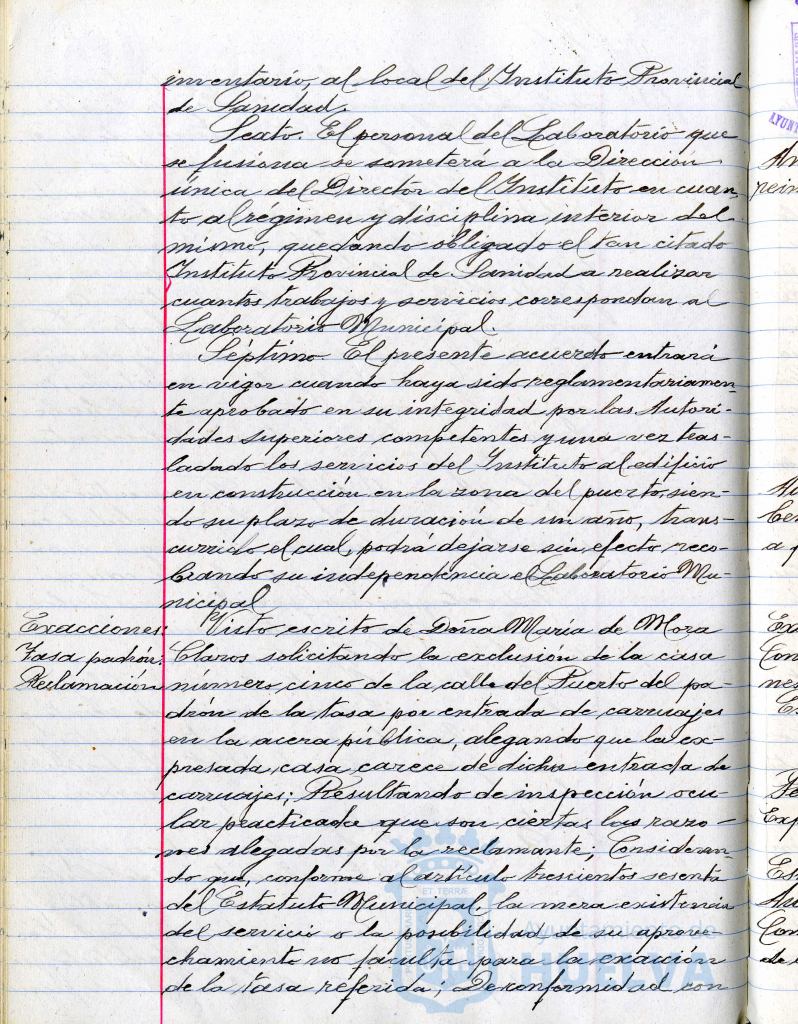 inventario, al local del Instituto Provincial
de Sanidad.
Sexto. El personal del Laboratorio que
se fusiona se someterá a la Dirección
única del Director del Instituto en cuan-
to al régimen y disciplina interior del
mismo, quedando obligado el tan citado
Instituto Provincial de Sanidad a realizar
cuantos trabajos y servicios correspondan al
Laboratorio Municipal.
Séptimo. El presente acuerdo entrará
en vigor cuando haya sido reglamentariamen-
te aprobado en su integridad por las Autori-
dades superiores competentes y una vez tras-
ladado los servicios del Instituto al edificio
en construcción en la zona del puerto, sien-
do su plazo de duración de un año, trans-
currido el cual, podrá dejarse sin efecto reco-
brando su independencia el Laboratorio Mu-
nicipal
Exacciones:
Tasa padrón:
Reclamación
Visto escrito de Doña María de Mora
Claros solicitando la exclusión de la casa
número cinco de la calle del Puerto del pa-
drón de la tasa por entrada de carruajes
en la acera pública, alegando que la ex-
presada casa carece de dicha entrada de
carruajes; Resultando de inspección ocu-
lar practicada que son ciertas las razo-
nes alegadas por la reclamante; Consideran-
do que, conforme al artículo trescientos sesenta
del Estatuto Municipal la mera existencia
del servicio o la posibilidad de su aprove-
chamiento no faculta para la exacción
de la tasa referida; De conformidad con
ET TERRAE
Ayuntamiento de
HUELVA